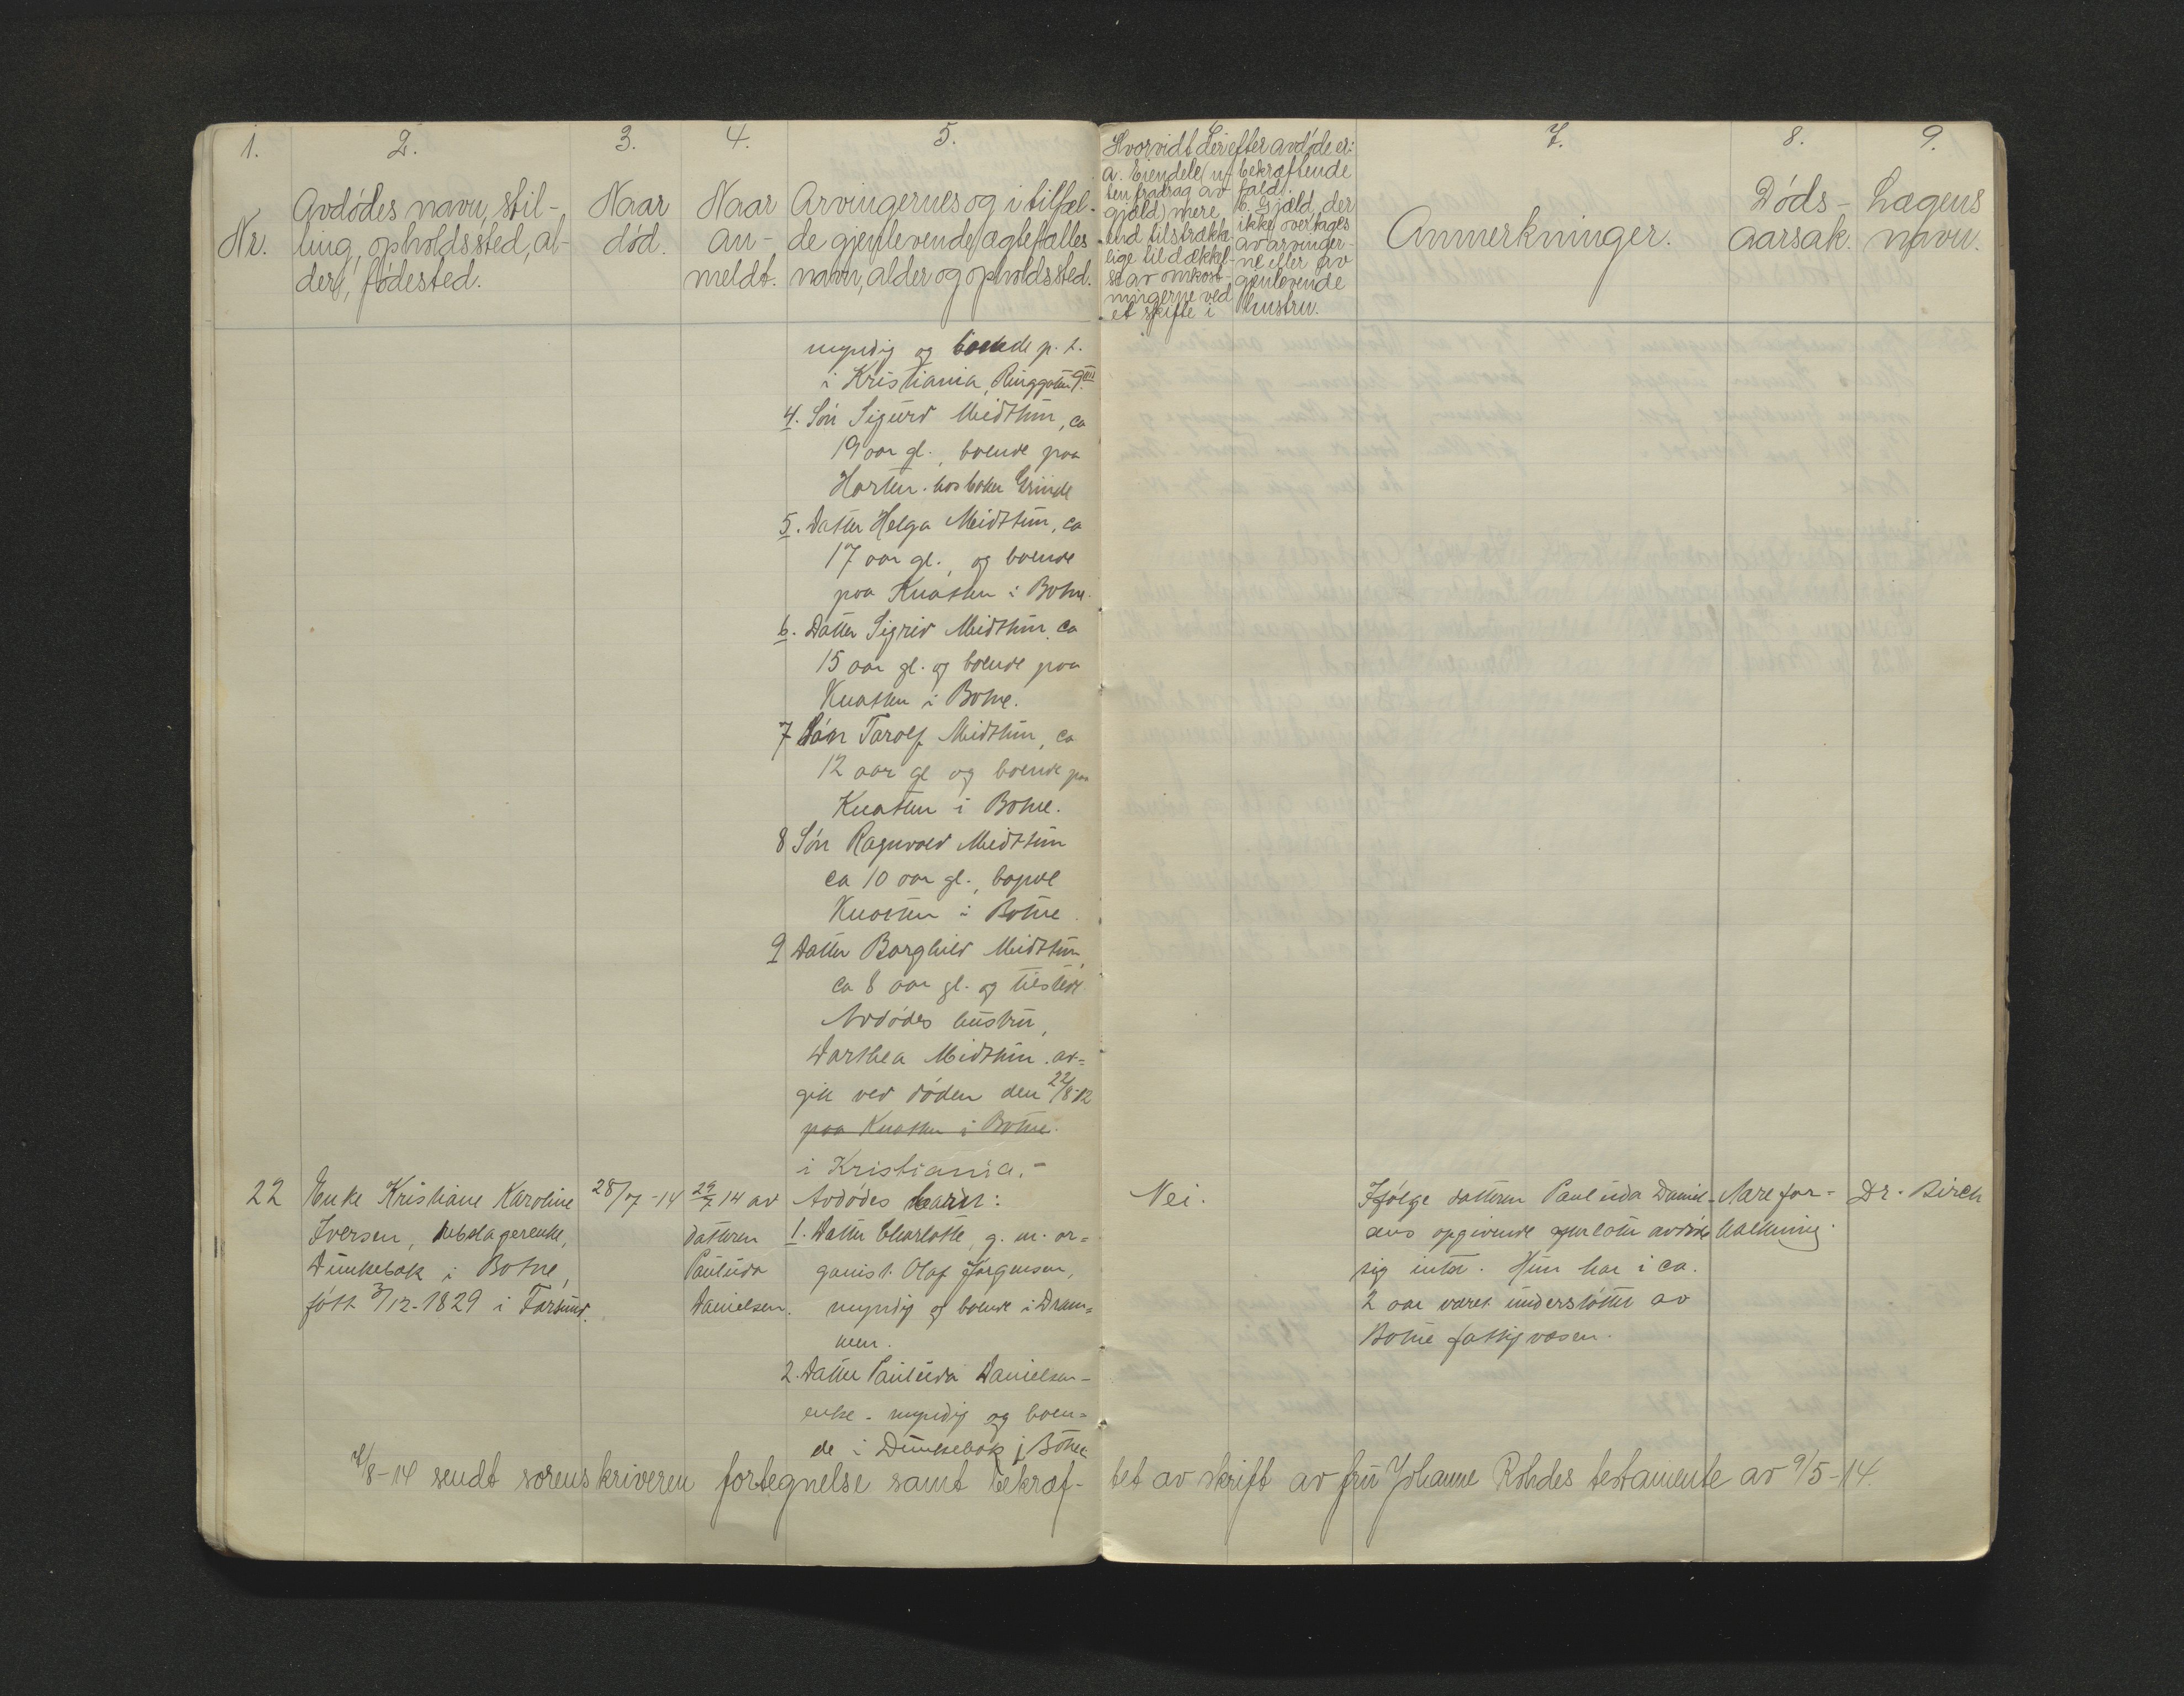 1.
2.
3.
4.
5.
6.
7.
8.
9.
Nr.
Avdødes navn, stil-
ling, opholdssted, al-
der, fødested.
Naar
død.
Naar
an-
meldt.
Arvingernes og i tilfæl-
de gjenlevende ægtefælles
navn, alder og opholdssted.
Hvorvidt der efter avdøde er:
a. Eiendele (uf
ten fradrag av
gjæld) mere
end tilstrække
lige til dækkel-
se av omkost-
ningerne ved
et skifte i
bekræftende
fald).
b. Gjæld, der
ikke overtages
av arvinger-
ne eller av
gjenlevende
hustru.
Anmerkninger.
Døds-
aarsak.
Lægens
navn.
myndig og boende p. t.
i Kristiania, Ringgaten 9 III
4. Søn Sigurd Midttun, ca
19 aar gl., boende paa
Horten hos baker Grinde
5. Datter Helga Midttun, ca
17 aar gl., og boende
paa Knatten i Botne.
6. Datter Sigrid Midttun, ca
15 aar gl. og boende paa
Knatten i Botne.
7 Søn Tarolf Midttun, ca
12 aar gl og boende paa
Knatten i Botne.
8 Søn Ragnvald Midttun
ca 10 aar gl., bopæl
Knatten i Botne.
9 Datter Borghild Midttun,
ca 8 aar gl. og tilstede
Avdødes hustru,
Dorthea Midttun av=
gik ved døden den 22/8-12
paa Knatten i Botne.
i Kristiania.-
22
Enke Kristiane Karoline
Iversen,
Dunkebæk i Botne,
født 3/12-1829 i Farsund.
28/7-14
29/7 14 av
datteren
Paulida
Danielsen.
Avdødes barn:
1. Datter Charlotte, g. m. or=
ganist Olaf Jørgensen,
myndig og boende i Dram=
men.
2. Datter Paulida Danielsen-
enke. myndig og boen=
de i Dunkebæk i Botne
Nei.
Ifølge datteren Paulida Daniel-
sens opgivende efterlater avdøde
sig intet. Hun har i ca.
2 aar været understøttet av
Botne fattigvæsen.
Aarefor-
kalkning.
Dr. Birch
4/8-14 sendt sorenskriveren fortegnelse samt bekræf-
tet avskrift av fru Johanne Rohdes testamente av 9/5-14.